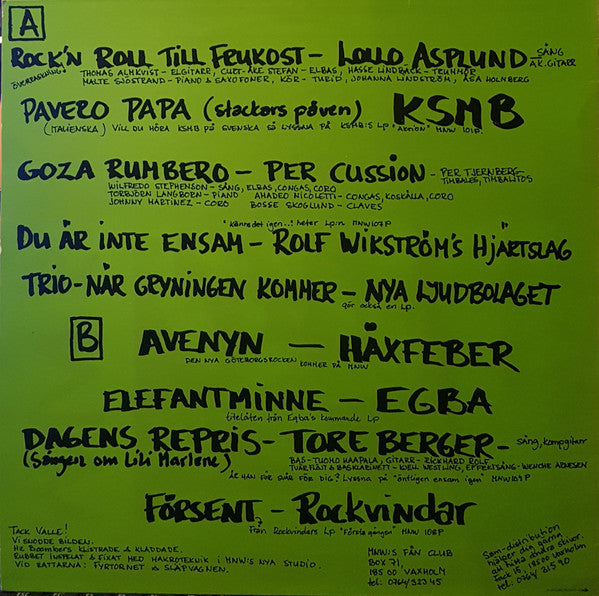 A
ROCK'N ROLL TILL FRUKOST – LOLLO ASPLUND – SÅNG AK. GITARR
ÖVERRASKNING!
THOMAS ALMKVIST – ELGITARR, CURT-ÅKE STEFAN – ELBAS, HASSE LINDBÄCK – TRUMMOR
MALTE SJÖSTRAND – PIANO & SAXOFONER, KÖR – TURID, JOHANNA LINDSTRÖM, ÅSA HOLMBERG
PAVERO PAPA (stackars påven) KSMB
(ITALIENSKA) VILL DU HÖRA KSMB PÅ SVENSKA SÅ LYSSNA PÅ KSMB:S Lp "Aktion" MNW 101P.
GOZA RUMBERO – PER CUSSION – PER TJERNBERG – TIMBALES, TIMBALITOS
WILFREDO STEPHENSON – SÅNG, ELBAS, CONGAS, CORO
TORBJÖRN LANGBORN – PIANO AMADEO NICOLETTI – CONGAS, KOSKÄLLA, CORO
JOHNNY MARTINEZ – CORO BOSSE SKOGLUND – CLAVES
"känns det igen..." heter Lp:n MNW107P
DU ÄR INTE ENSAM – ROLF WIKSTRÖM'S HJÄRTSLAG
TRIO – NÄR GRYNINGEN KOMMER – NYA LJUDBOLAGET
gör också en Lp.
B
AVENYN – HÄXFEBER
DEN NYA GÖTEBORGSROCKEN KOMMER PÅ MNW
ELEFANTMINNE – EGBA
titellåten från Egba's kommande Lp
DAGENS REPRIS – TORE BERGER – sång, kompgitarr
(Sången om Lili Marlene)
BAS – TUOMO HAAPALA, GITARR – RICKHARD ROLF
TVÄRFLÖJT & BASKLARINETT – KJELL WESTLING, EFFEKTSÅNG – WENCHE ARNESEN
ÄR HAN FÖR SVÅR FÖR DIG? Lyssna på "äntligen ensam igen" MNW109P
FÖRSENT – Rockvindar
Från Rockvindars Lp "Första gången" MNW 108P
TACK VALLE!
VI SNODDE BILDEN.
HZ BOOMBERS KLISTRADE & KLADDADE.
RUBBET INSPELAT & FIXAT MED MAKROTEKNIK I MNW:S NYA STUDIO.
VID RATTARNA: FYRTORNET & SLÄPVAGNEN.
MNW:S FÅN CLUB
BOX 71,
185 00 VAXHOLM
tel: 0764/323 45
Sam-distribution
hjälper dig gärna
att hitta andra skivor.
Fack 15, 18500 Vaxholm
tel: 0764/315 90